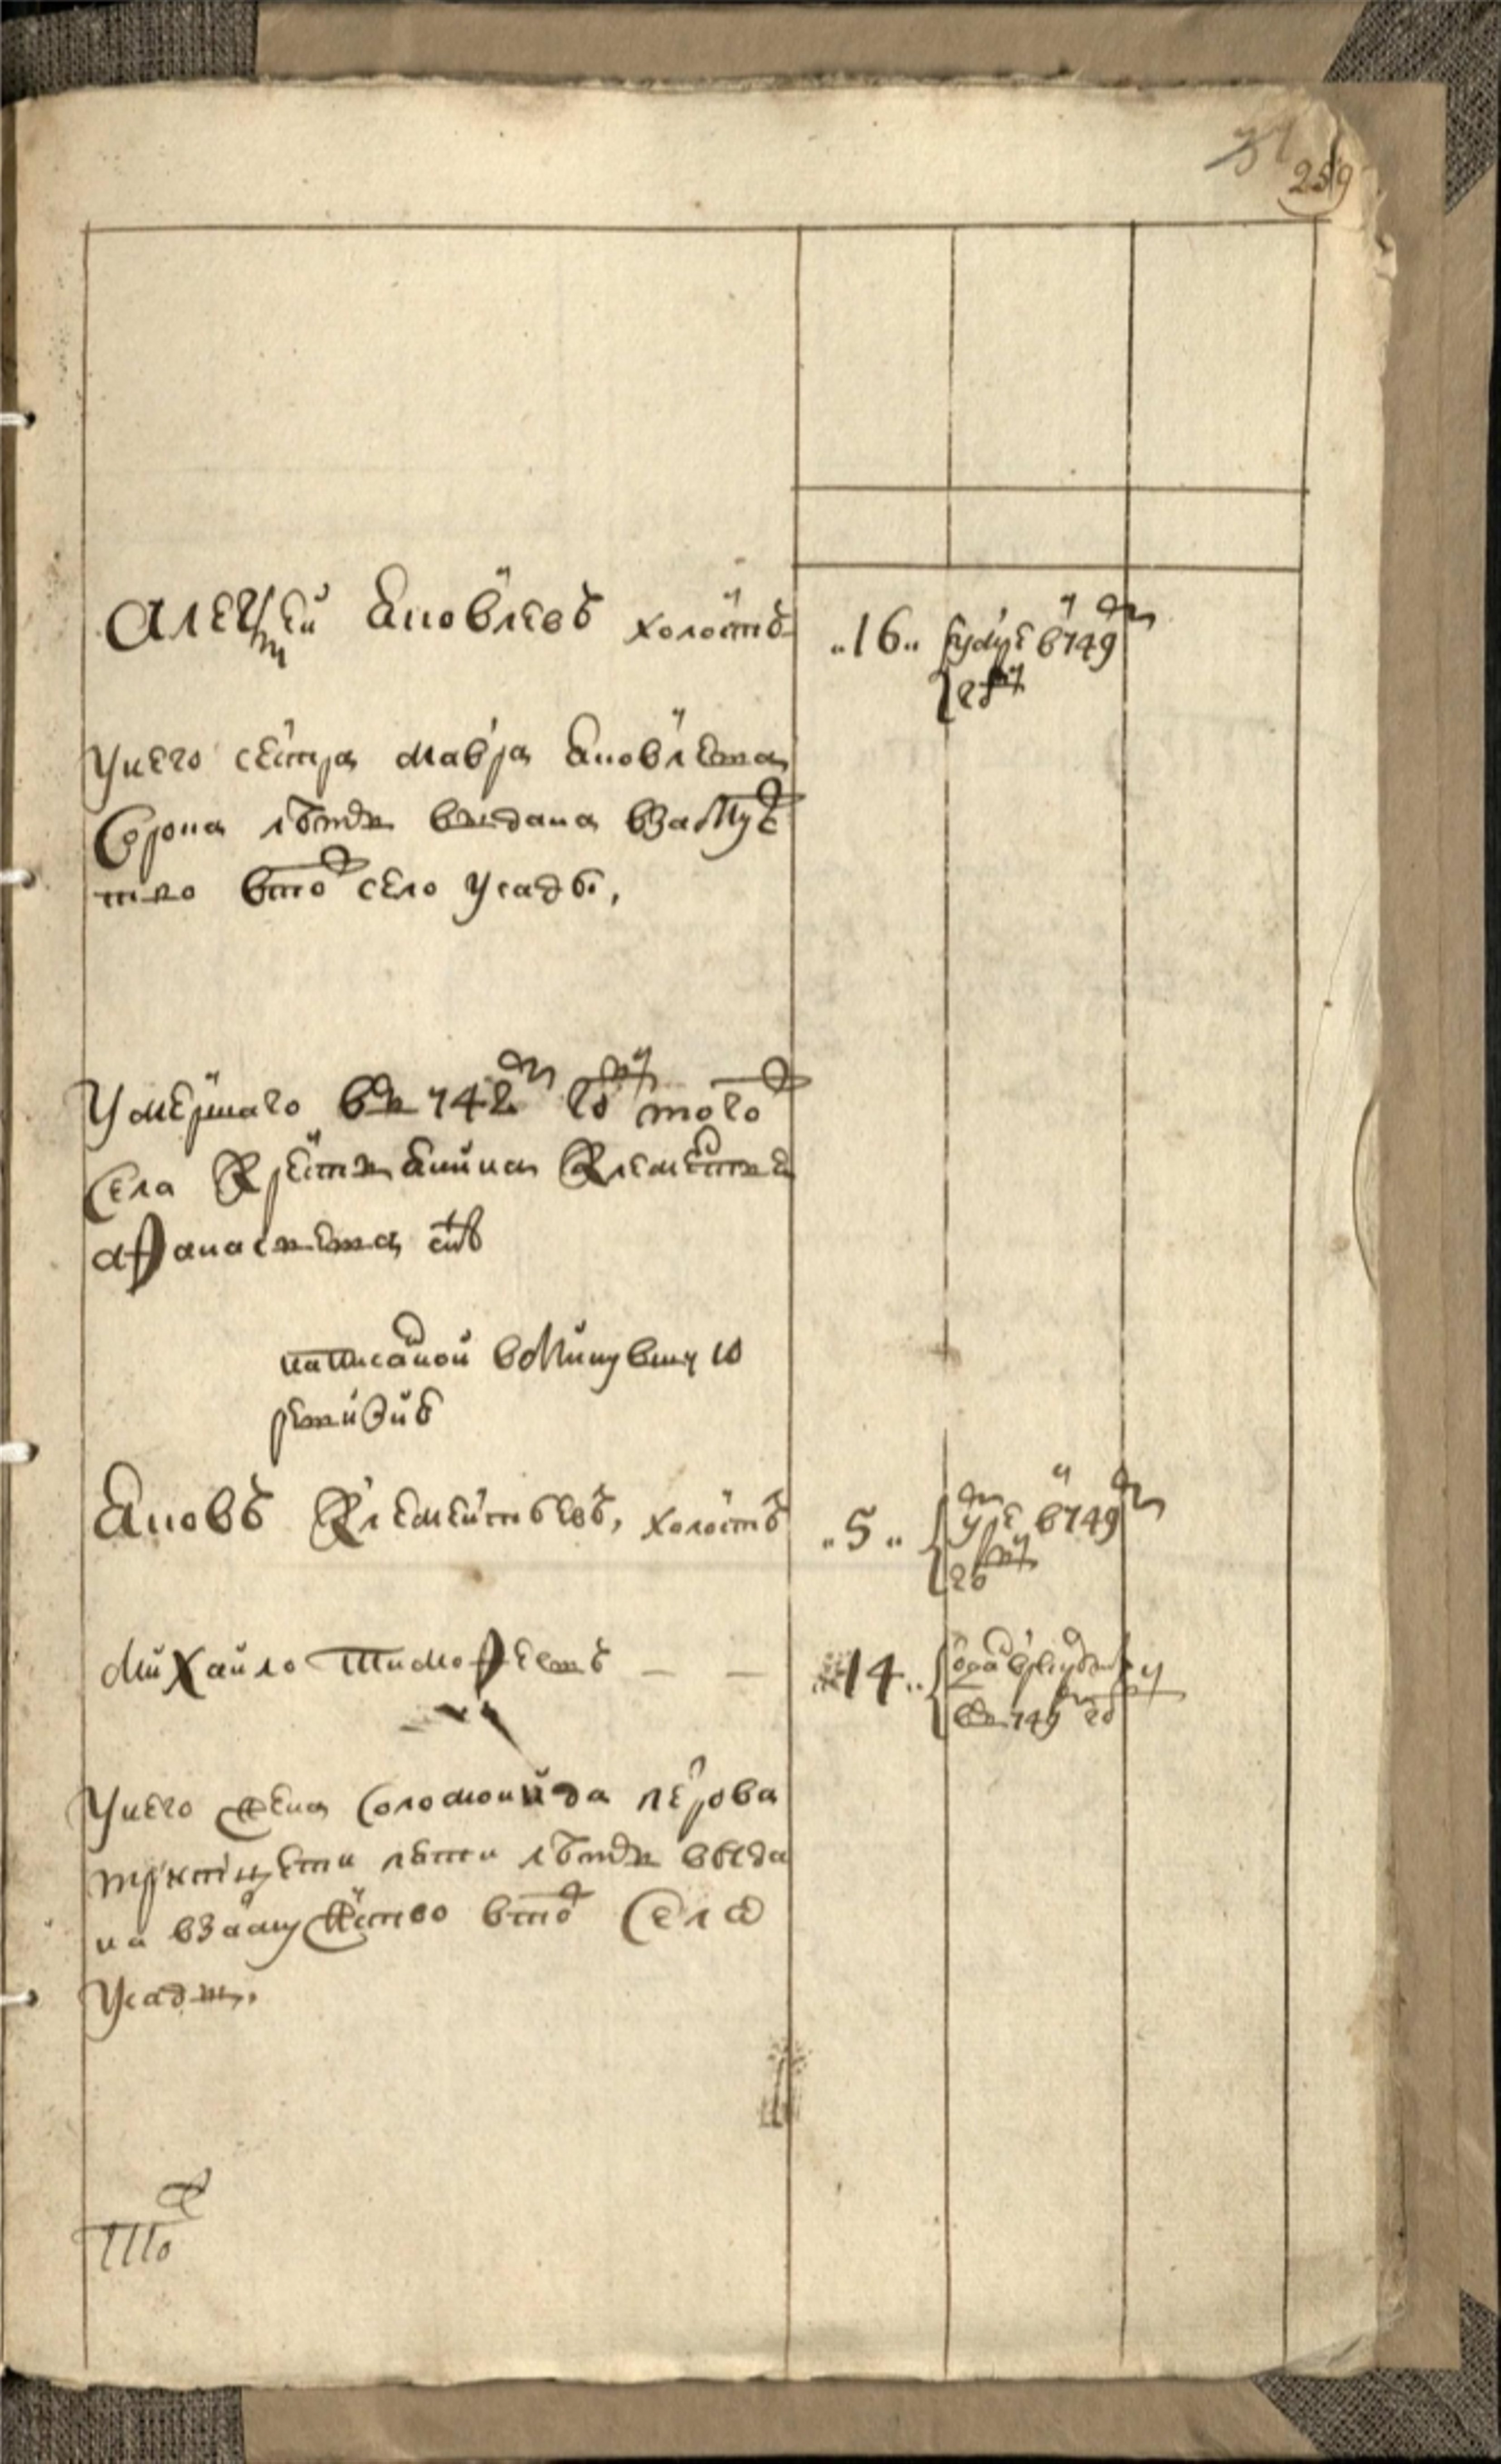 259
Алексей Яковлевъ холостъ
16
749
году
Унего сестра Мавра Яковлева
сорока летъ выдана взамуже
ство втож село Усады,
Умершаго в 742 году тогож
села крестьянина Клементья
Афанасьева снъ
написанной вминувшую
ревизию
Яковъ Клементьевъ, холостъ
5
умре в 749
году
Михайло Тимофеевъ
14
отдан в рекруты
в 749 году
Унего жена Соломонида Петрова
тритцети пети летъ выда
на взамужество втож село
Усады.